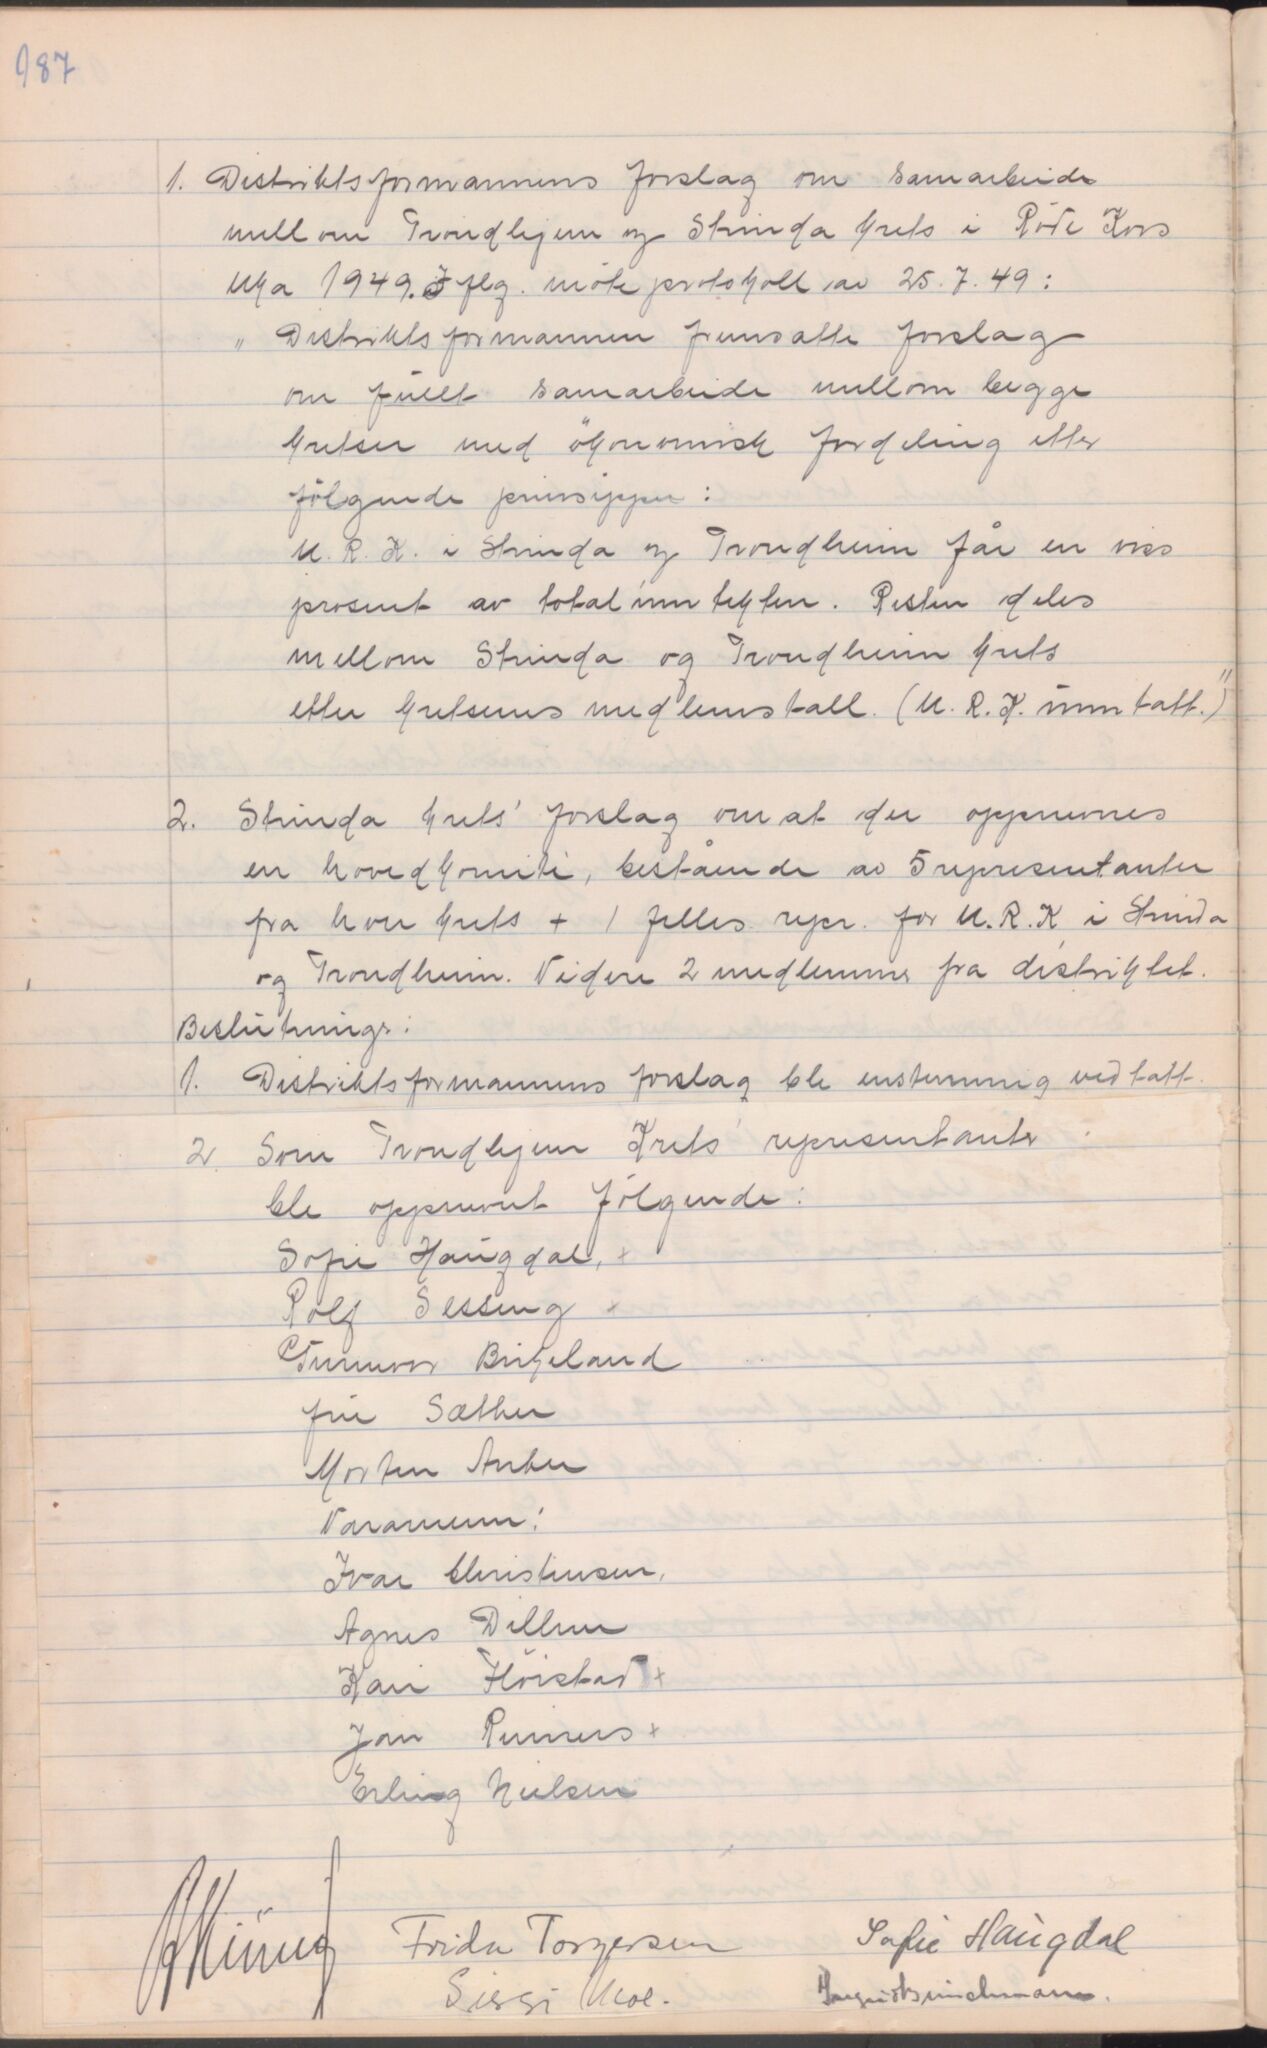 187
1. Distriktsformannens forslag om samarbeide
mellom Trondhjem og Strinda krets i Røde Kors
Uka 1949. I flg. møteprotokoll av 25.7.49:
" Distriktsformannen fremsatte forslag
om fullt samarbeide mellom begge
kretser med økonomisk fordeling etter
følgende prinsipper:
U.R.K. i Strinda og Trondheim får en viss
prosent av totalinntekten. Resten deles
mellom Strinda og Trondheim krets
etter kretsenes medlemstall. (U.R.K. inntatt.)"
2. Strinda krets' forslag om at der oppnevnes
en hovedkomite, bestående av 5 representanter
fra hver krets + 1 felles repr. for U.R.K i Strinda
og Trondheim. Videre 2 medlemmer fra distriktet.
Beslutninger:
1. Distriktsformannens forslag ble enstemmig vedtatt.
2. Som Trondhjem Krets' representanter
ble oppnevnt følgende:
Sofie Haugdal, +
Rolf Sesseng +
Gunnvor Birkeland
fru Sæther
Morten Anker
Varamenn:
Ivar Christensen,
Agnes Dillner
Kari Flörstad +
Jan Reiners +
Erling Nielsen
Frida Torgersen
Sofie Haugdal
Siggi Moe.